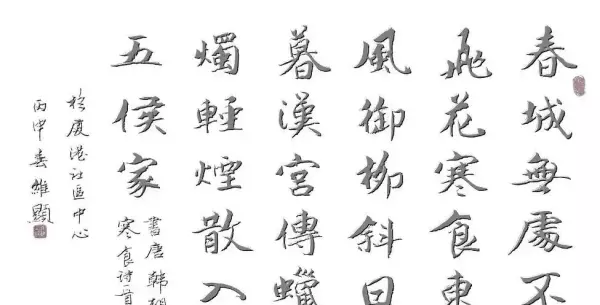 春城無處不
飛花寒食東
風御柳斜日
暮漢宮傳蠟
燭輕煙散入
五侯家
書唐韓
寒食诗一首
於廈港社區中心
丙申春維顯